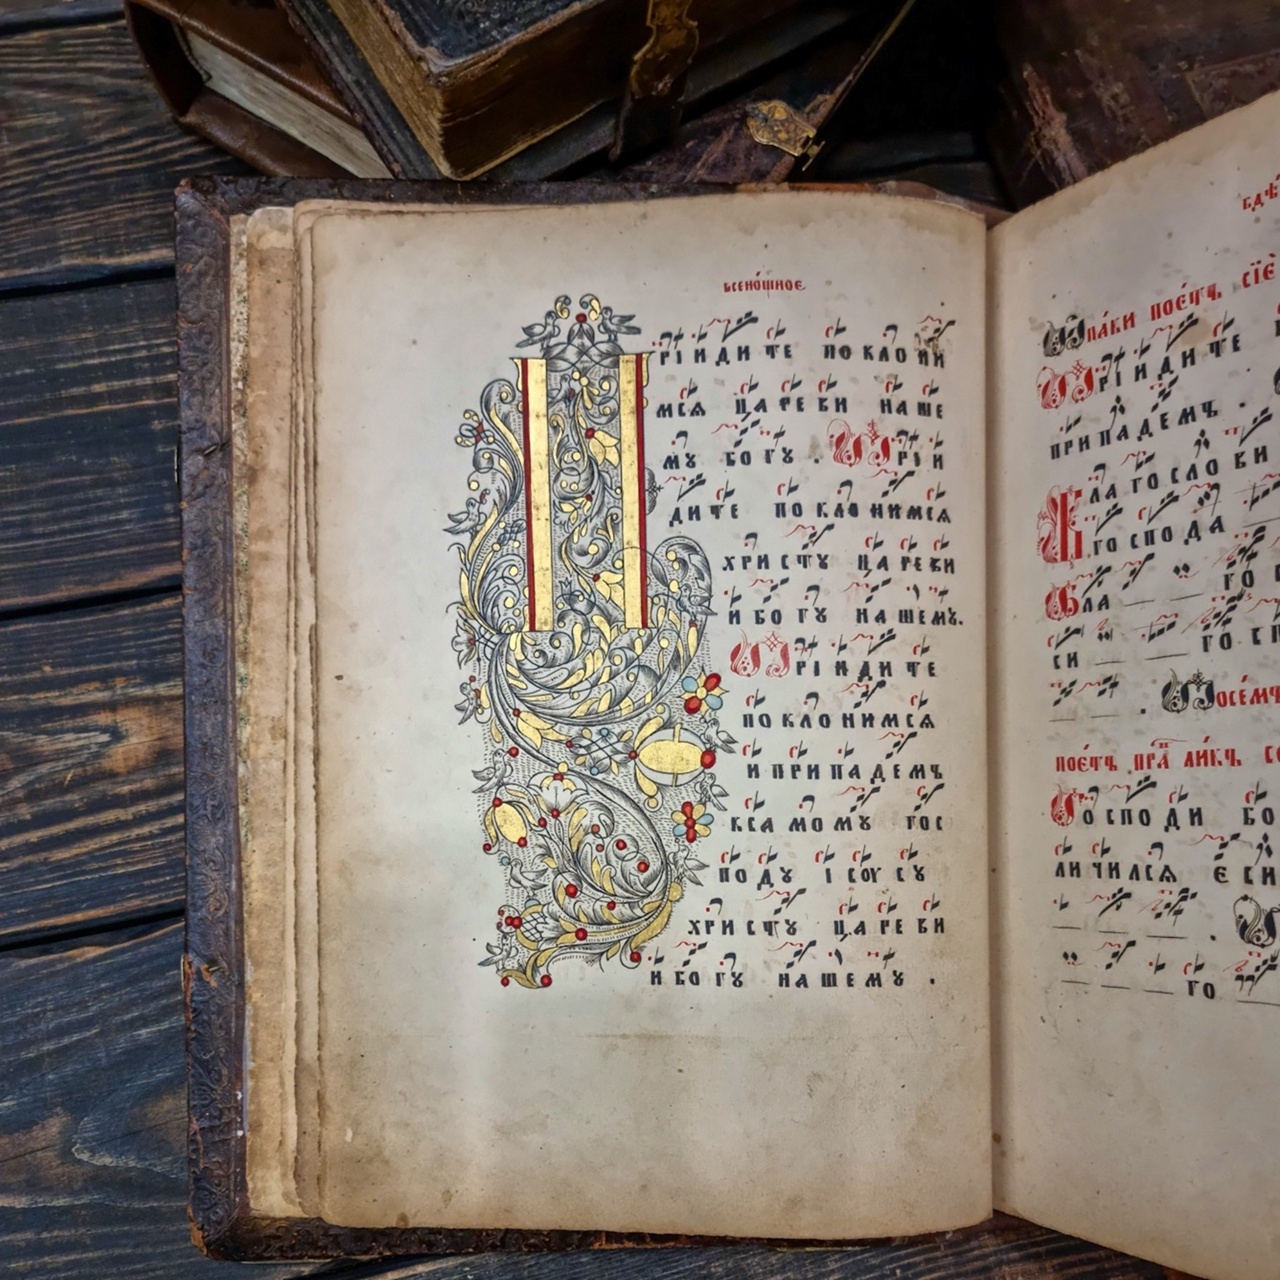 всено́щное
Прїидите поклони
мся цареви наше
му богꙋ . Прїи
дите поклонимся
христꙋ цареви
и богꙋ нашемꙋ.
Прїидите
поклонимся
и припадемъ
ксамомꙋ гос
подꙋ ісоусꙋ
христꙋ цареви
и богꙋ нашемꙋ .
бдѣ
Ѡпа́ки пое́тъ сїѐ
Прїидите
припадемъ .
благослови
господа
Бла го
си го сп
. Посе́мъ
пое́тъ пра́
Господи бо
личился єси
.
го